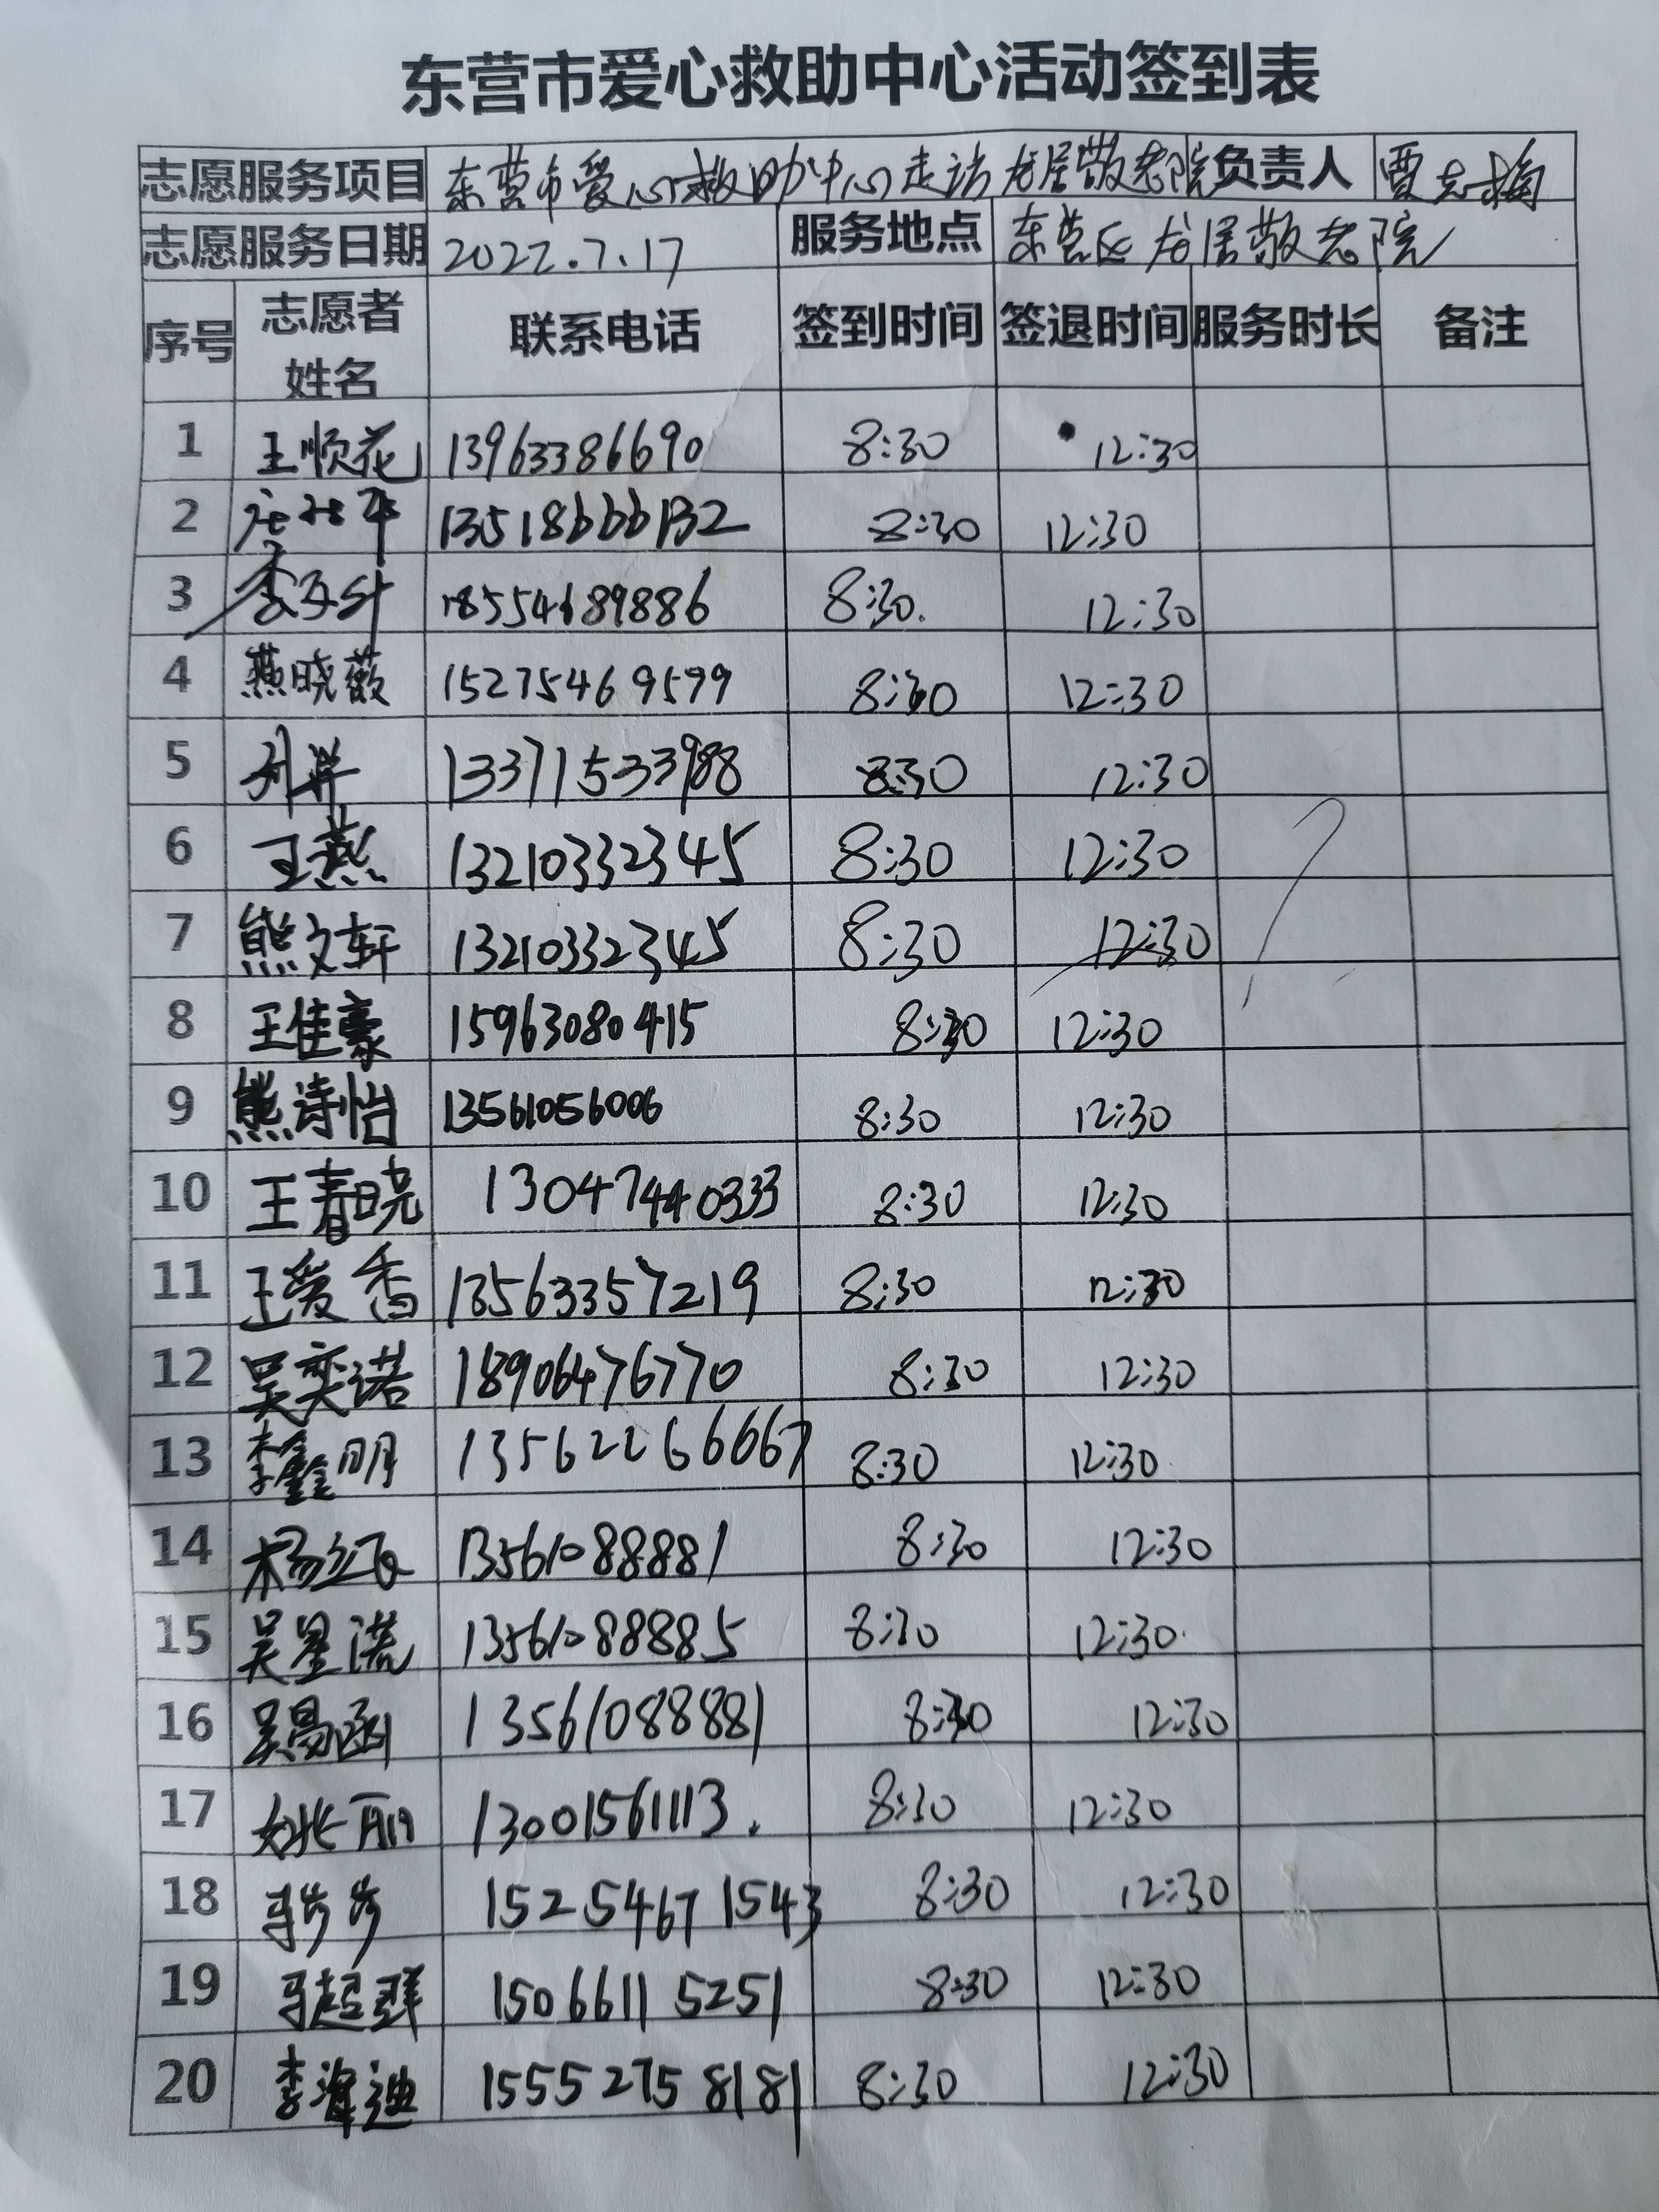 东营市爱心救助中心活动签到表
志愿服务项目 东营市爱心救助中心走访龙居敬老院 负责人 贾志梅
志愿服务日期 2022.7.17 服务地点 东营区龙居敬老院
序号 志愿者姓名 联系电话 签到时间 签退时间 服务时长 备注
1 王顺花 13963386690 8:30 12:30
2 13518666132 8:30 12:30
3 18554689886 8:30. 12:30
4 燕晓薇 15275469599 8:30 12:30
5 13371533988 8:30 12:30
6 王燕 13210332345 8:30 12:30
7 熊文轩 13210332345 8:30 12:30
8 王佳豪 15963080415 8:30 12:30
9 熊诗怡 13561056006 8:30 12:30
10 王春晓 13047440333 8:30 12:30
11 王爱香 13563357219 8:30 12:30
12 吴奕诺 18906476770 8:30 12:30
13 李鑫明 13562266667 8:30 12:30
14 杨红 13561088881 8:30 12:30
15 13561088885 8:30 12:30
16 13561088881 8:30 12:30
17 姚丽 13001561113. 8:30 12:30
18 马步步 15254671543 8:30 12:30
19 马超群 15066115251 8:30 12:30
20 李海迪 15552758181 8:30 12:30